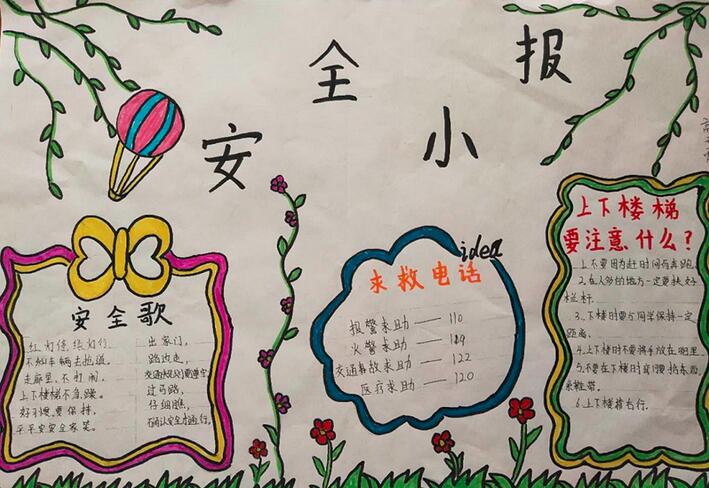 安全小报
安全歌
红灯停,绿灯行,
不如车辆去抢道,
走廊里,不打闹,
上下楼梯不急躁。
好习惯,要保持,
平平安安全家笑。
出家门,
路边走,
交通规则要遵守
过马路,
仔细瞧,
确认安全才通行。
idea
求救电话
报警求助——110
火警求助——119
交通事故求助——122
医疗求助——120
上下楼梯
要注意什么?
1.不要因为赶时间而奔跑。
2.在人多的地方一定要扶好
栏杆.
3.下楼时要与同学保持一定
距离.
4.上下楼时不要将手放在
5.不要在下楼时
系鞋带.
6.上下楼梯右行.